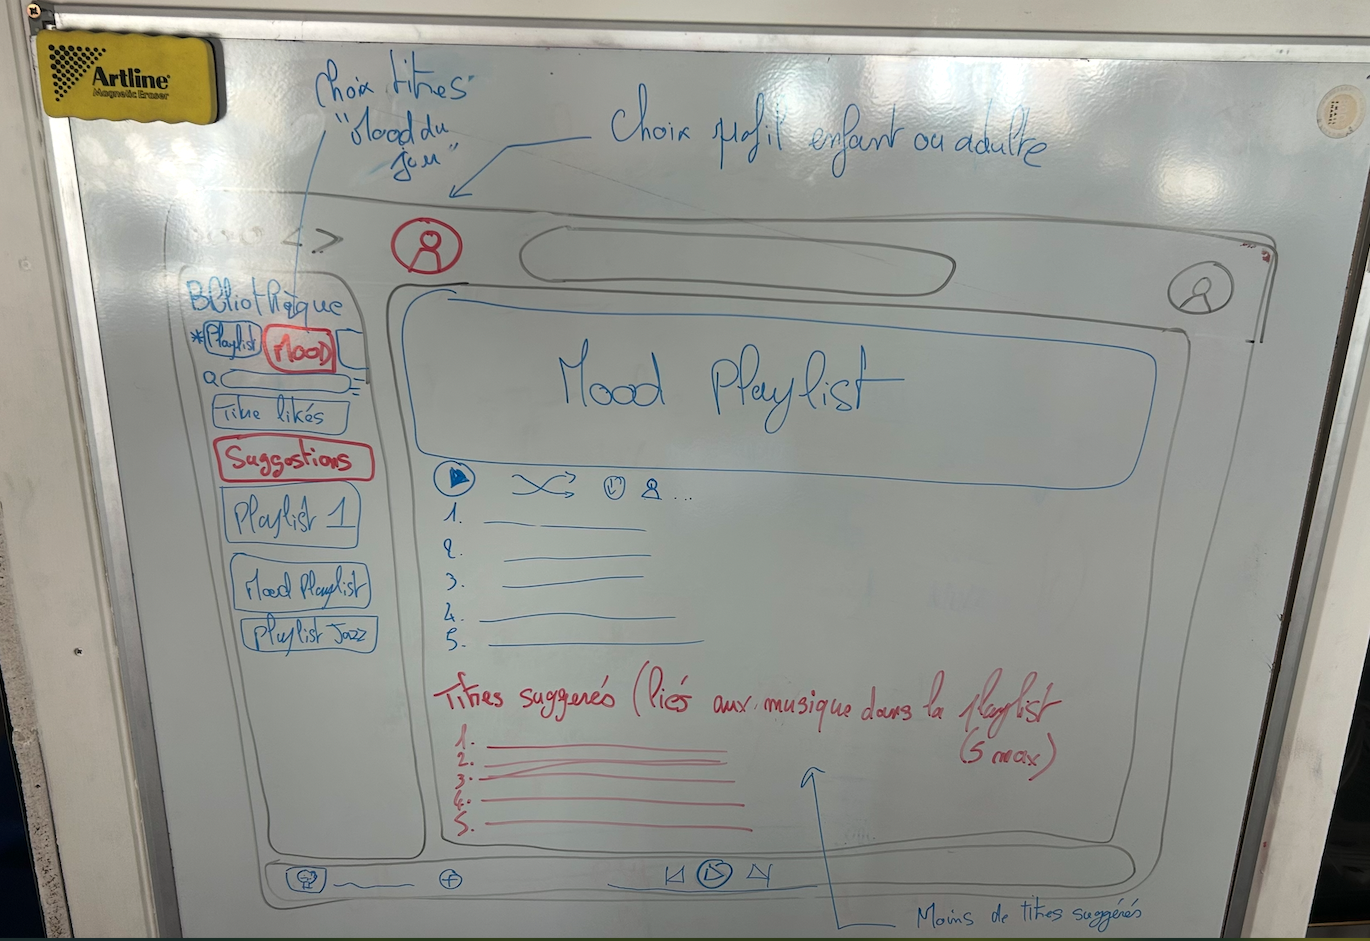 Artline
Magnetic Eraser
Choix titres
"Mood du
jour"
Choix profil enfant ou adulte
< >
Bibliothèque
*Playlist
MOOD
Titre likés
Suggestions
Playlist 1
Mood Playlist
Playlist Jazz
Mood Playlist
...
1.
2.
3.
4.
5.
Titres suggérés (liés aux musique dans la playlist
(5 max)
1.
2.
3.
4.
5.
Moins de titres suggérés